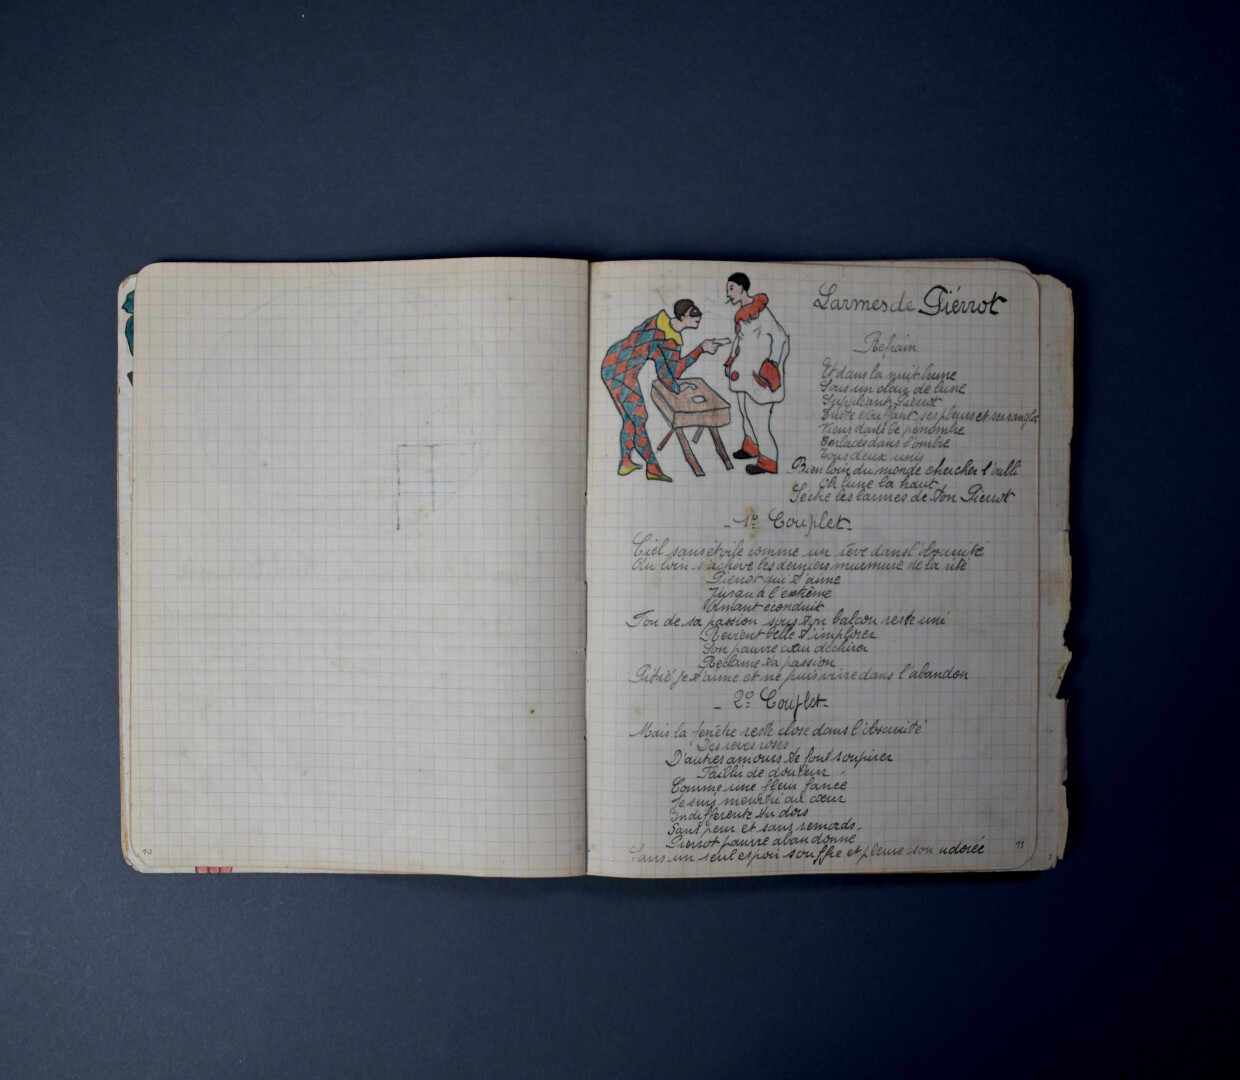 Larmes de Piérrot
Refrain
Et dans la nuit brune
Sous un clair de lune
Suppliant Pierrot
Triste étouffant ses pleurs et ses sanglots
Viens dans la penombre
Enlacés dans l'ombre
Tous deux unis
Bien loin du monde chercher l'oubli
Oh lune la haut
Seche les larmes de ton Pierrot
- 1º Couplet -
Ciel sans étoile comme un rêve dans l'obscurité
Au loin s'acheve les derniers murmure de la cité
Pierrot qui t'aime
Jusqu'à l'extrême
Amant éconduit
Fou de sa passion sous ton balcon reste uni
Revient belle t'implorer
Son pauvre cœur déchirer
Reclame ta passion
Pitié je t'aime et ne puis vivre dans l'abandon
- 2º Couplet -
Mais la fenêtre reste close dans l'obscurité
Des reves roses
D'autres amours te font soupirer
de douleur
Comme une fleur fanée
Je suis meurtri au cœur
Indifferente tu dors
Sans peur et sans remords.
Pierrot pauvre abandonné
Sans un seul espoir souffre et pleure son adorée
10
11